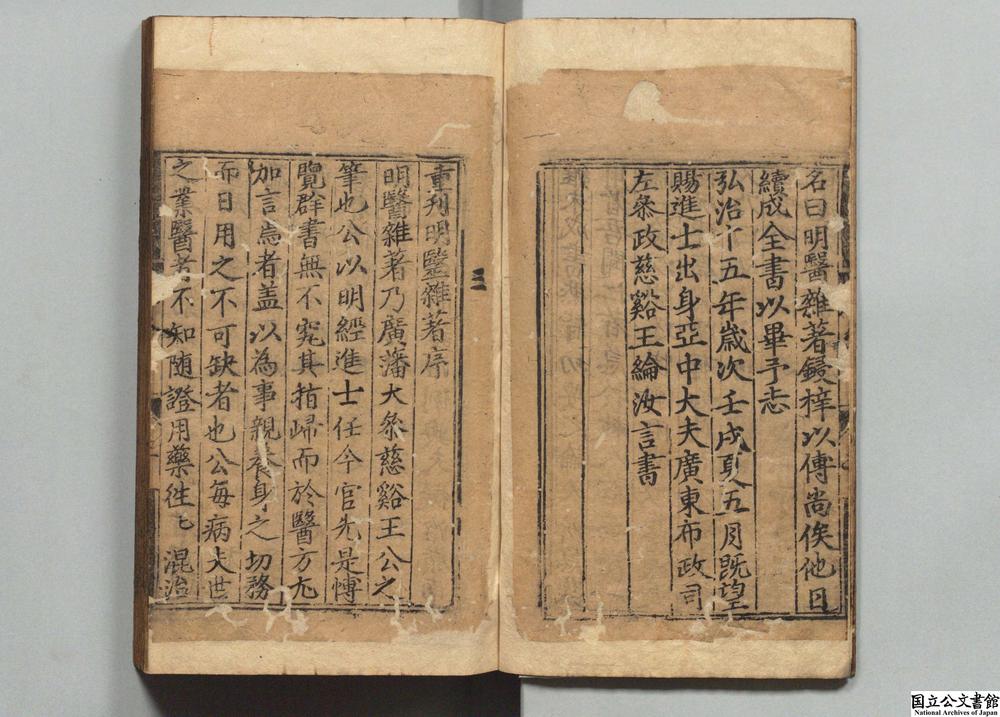 名曰明醫雜著鋟梓以傳尚俟他日
續成全書以畢予志
弘治十五年歲次壬戌夏五月旣望
賜進士出身亞中大夫廣東布政司
左叅政慈谿王綸汝言書
重刋明醫雜著序
明醫雜著乃廣藩大叅慈谿王公之
筆也公以明經進士任今官先是愽
覽群書無不究其指歸而於醫方尤
加言焉者盖以為事親養身之切務
而日用之不可缺者也公每病夫世
之業醫者不知随證用藥徃〻混治
国立公文書館
National Archives of Japan